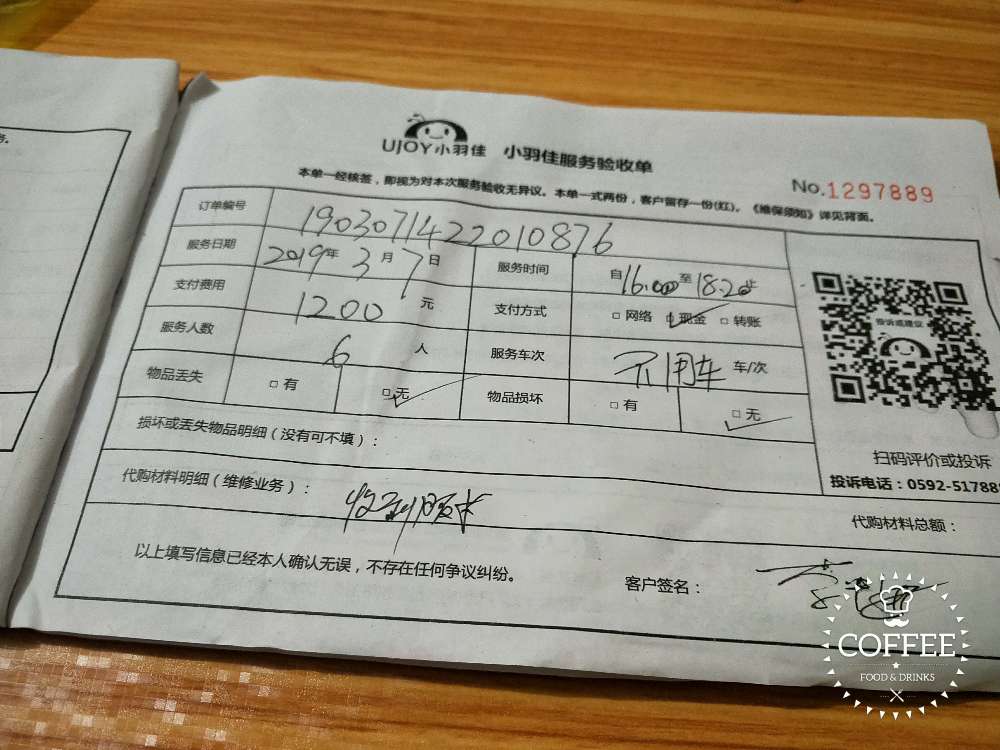 UJOY小羽佳 小羽佳服务验收单
No.1297889
本单一经核签，即视为对本次服务验收无异议。本单一式两份，客户留存一份(红)。《维保须知》详见背面。
订单编号 1903071422010876
服务日期 2019年3月7日 服务时间 自16.00至18.20止
支付费用 1200元 支付方式 □网络 □现金 □转账
服务人数 6人 服务车次 不用车 车/次
物品丢失 □有 □无 物品损坏 □有 □无
投诉或建议
扫码评价或投诉
投诉电话：0592-517888
损坏或丢失物品明细（没有可不填）：
代购材料明细（维修业务）：
代购材料总额：
以上填写信息已经本人确认无误，不存在任何争议纠纷。
客户签名：
COFFEE
FOOD & DRINKS